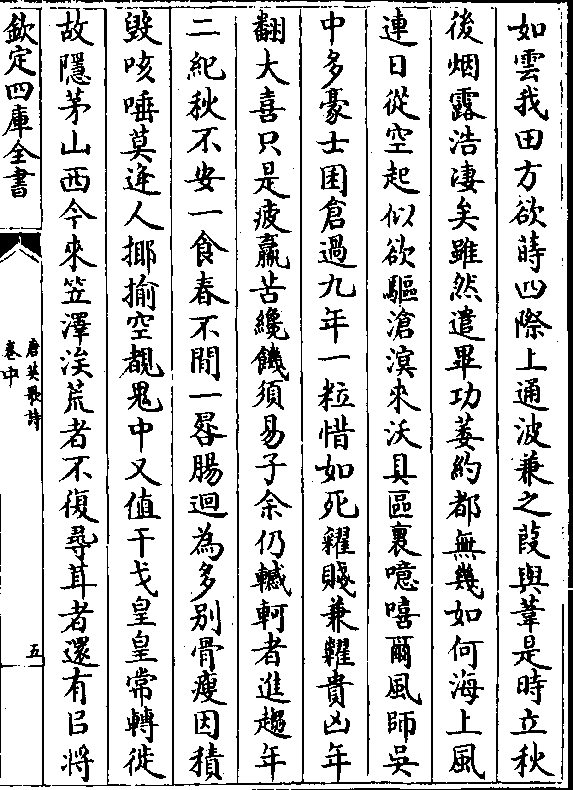 如雲我田方欲蒔四際上通波兼之葭與葦是時立秋
後烟露浩凄矣雖然遣畢功萎約都無幾如何海上風
連日從空起似欲驅滄溟來沃具區裏噫嘻爾風師吳
中多豪士囷倉過九年一粒惜如死糴賤兼糶貴凶年
翻大喜只是疲羸苦纔饑須易子余仍轗軻者進趨年
二紀秋不安一食春不閒一晷腸迴為多别骨瘦因積
毀咳唾莫逢人揶揄空覩鬼中又值干戈皇皇常轉徙
故隱茅山西今來笠澤涘荒者不復尋葺者還有㠯將
欽定四庫全書
唐英歌詩
卷中
五